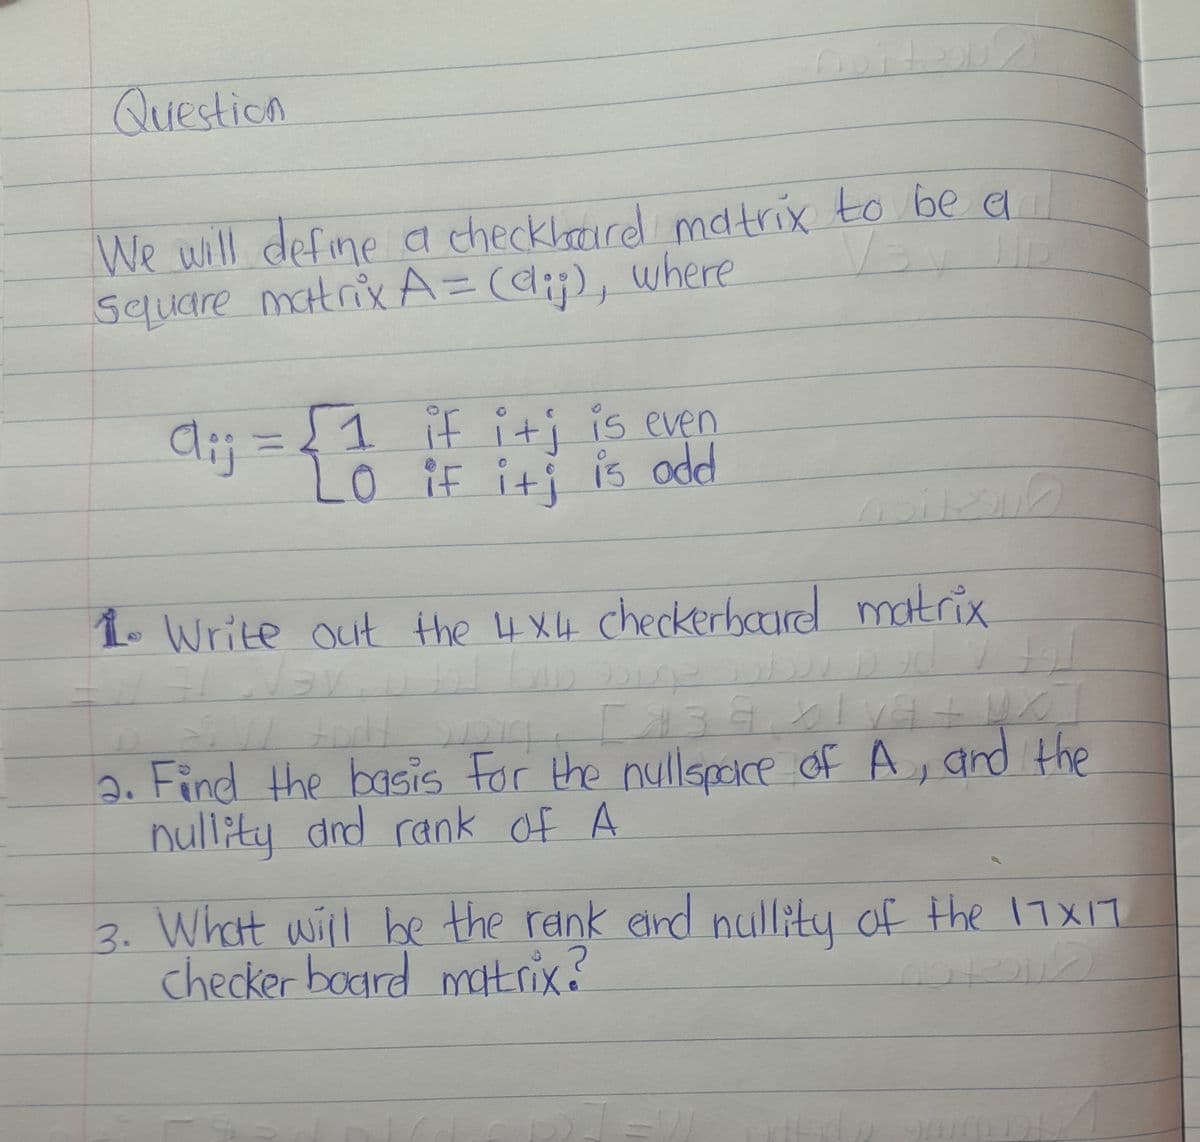 Question
We will define a checkboard matrix to be a
square matrix A = (aij), where
aij = { 1 if i+j is even
0 if i+j is odd
1. Write out the 4x4 checkerboard matrix
2. Find the basis for the nullspace of A, and the
nullity and rank of A
3. What will be the rank and nullity of the 17x17
checker board matrix?